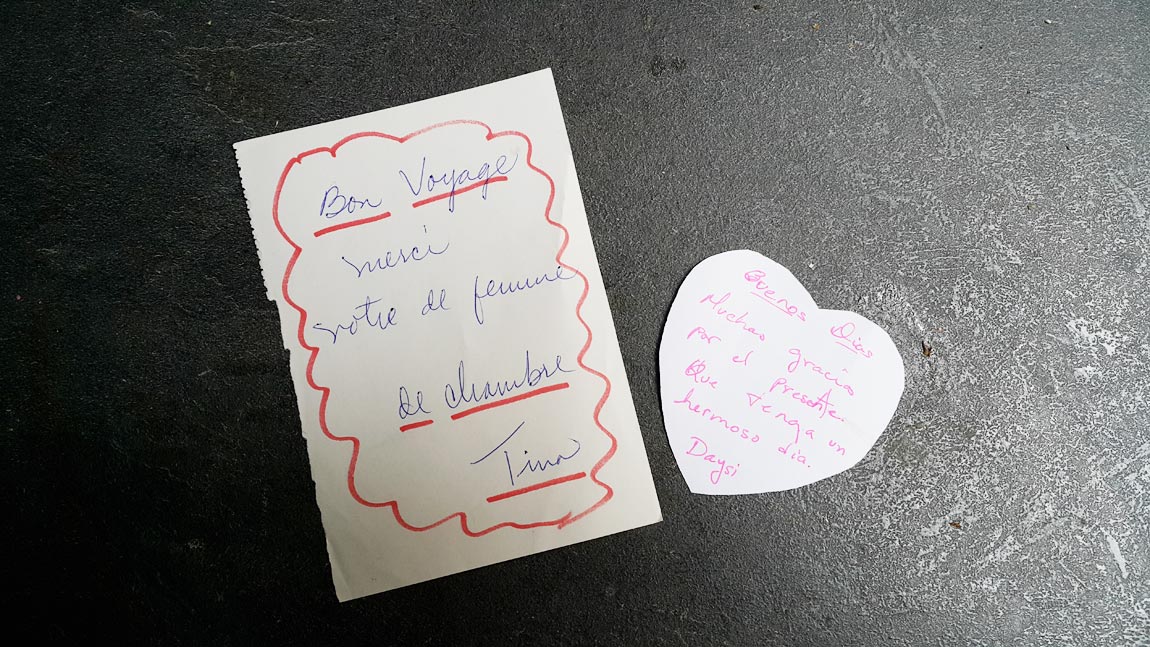 Bon Voyage
merci
votre de femme
de chambre
Tina
Buenos Dias
Muchas gracias
por el presente
Que tenga un
hermoso dia.
Daysi